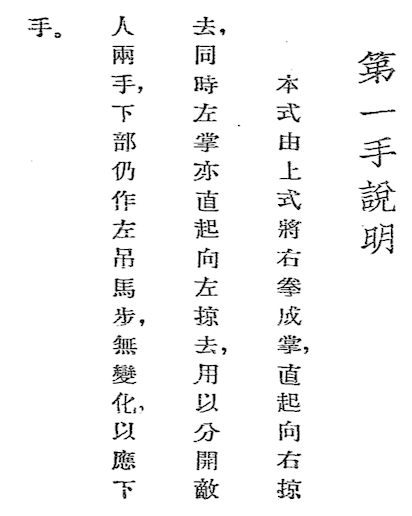 第一手說明
本式由上式將右拳成掌，直起向右掠
去，同時左掌亦直起向左掠去，用以分開敵
人兩手，下部仍作左吊馬步，無變化，以應下
手。